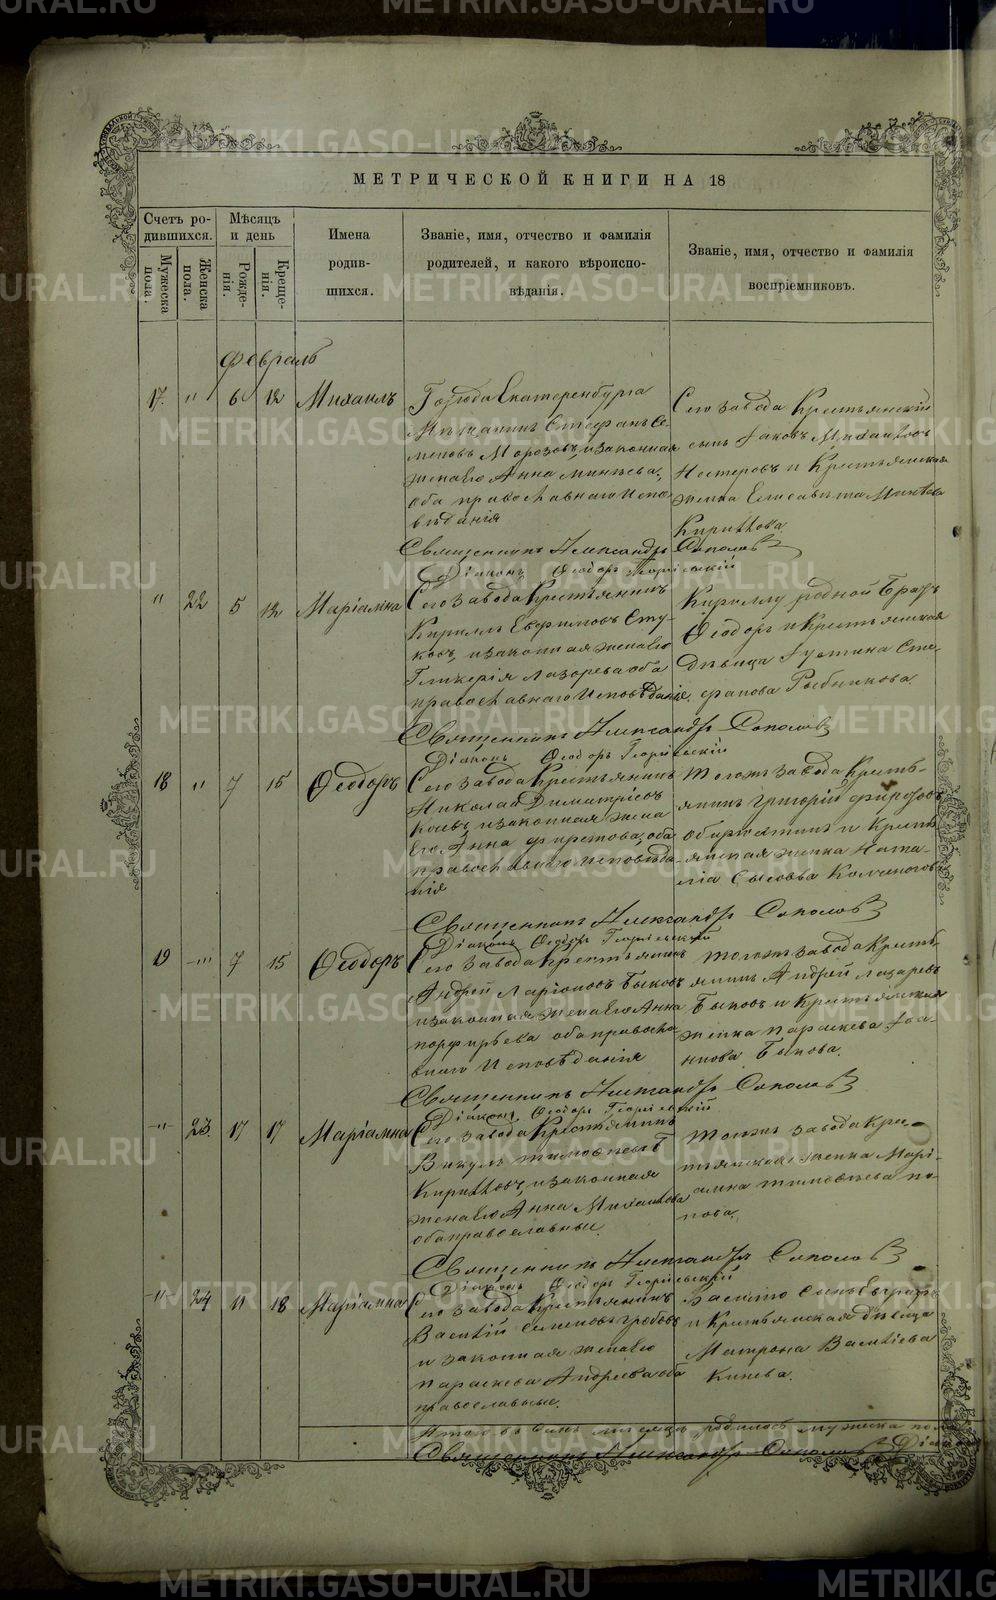 МЕТРИЧЕСКОЙ КНИГИ НА 18
Счетъ ро-
дившихся.
Мѣсяцъ
и день
Мужеска
пола.
Женска
пола.
Рожде-
нія.
Креще-
нія.
Имена
родив-
шихся.
Званіе, имя, отчество и фамилія
родителей, и какого вѣроиспо-
вѣданія.
Званіе, имя, отчество и фамилія
воспріемниковъ.
Февраль
17. " 6 12 Михаилъ
Города Екатеренбурга
Мѣщанинъ Стефанъ Се-
меновъ Морозовъ, и законная
жена его Анна
оба православнаго испо-
вѣданія
Сего завода Крестьянскій
сынъ Іаковъ Михаиловъ
Нестеровъ и Крестьянская
жена Елисавета
Кириллова
Священникъ Александръ Соколовъ
Діаконъ Ѳеодоръ Георгіевскій
" 22 5 12 Маріамна
Сего завода Крестьянинъ
Кириллъ Евфимовъ Сту-
ковъ, и законная жена его
Гликерія Лазорева оба
православнаго исповѣданія.
Кириллу родной братъ
Ѳеодоръ и Крестьянская
дѣвица Іустина Сте-
фанова Рыбникова
Священникъ Александръ Соколовъ
Діаконъ Ѳеодоръ Георгіевскій
18 " 7 15 Ѳеодоръ
Сего завода Крестьянинъ
Николай Димитріевъ
и законная жена
его Анна оба
православнаго исповѣда-
нія
Тогожъ завода Кресть-
янинъ Григорій
и Кресть-
янская женка Ната-
лія Сысоева
Священникъ Александръ Соколовъ
Діаконъ Ѳеодоръ Георгіевскій
19 " 7 15 Ѳеодоръ
Сего завода Крестьянинъ
Андрей Ларіоновъ Быковъ
и законная жена его Анна
Порфирьева оба правосла
внаго исповѣданія
Тогожъ завода Кресть-
янинъ Андрей Лазаревъ
Быковъ и Крестьянская
женка Параскева Іоа-
ннова Быкова.
Священникъ Александръ Соколовъ
Діаконъ Ѳеодоръ Георгіевскій
" 23 17 17 Маріамна
Сего завода Крестьянинъ
Викулъ Тимоѳеевъ
Кирилловъ, и законная
жена его Анна Михаилова
оба православные.
Тогожъ завода Кре-
стьянская женка Марі-
амна Тимоѳеева По-
пова.
Священникъ Александръ Соколовъ
Діаконъ Ѳеодоръ Георгіевскій
" 24 11 18 Маріамна
Сего завода Крестьянинъ
Василій Семеновъ
и законная жена его
Параскева Андреева оба
православные.
Василію сынъ Евграфъ
и Крестьянская дѣвица
Матрона Василіева
Кинева.
Итого въ семъ мѣсяцѣ родилось мужеска по
Священникъ Александръ Соколовъ Діа
METRIKI.GASO-URAL.RU